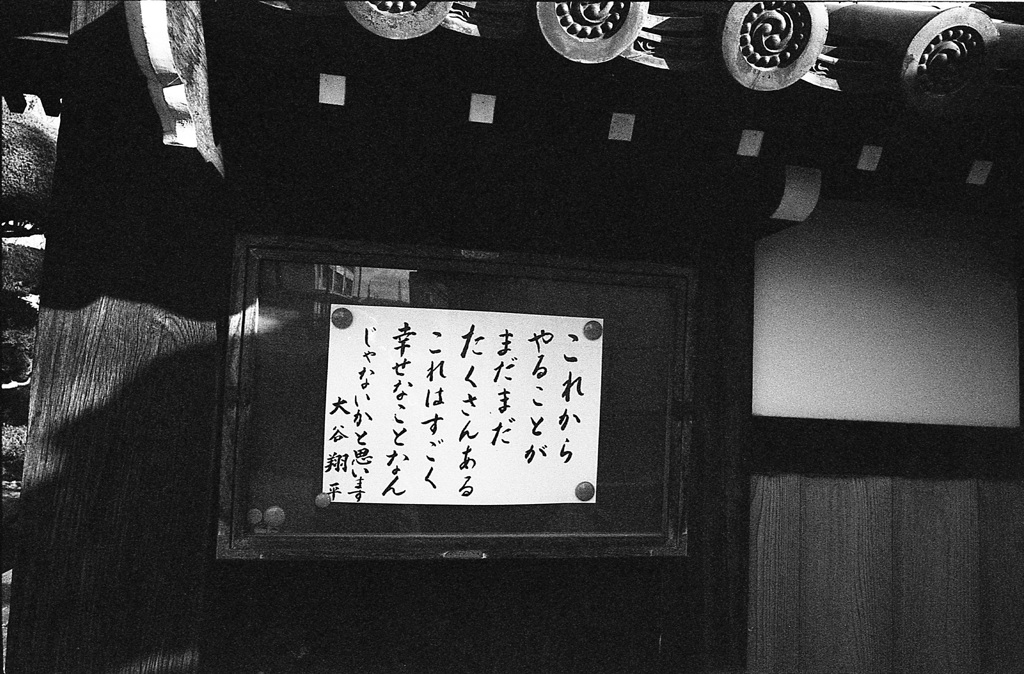 これから
やることが
まだまだ
たくさんある
これはすごく
幸せなことなん
じゃないかと思います
大谷翔平